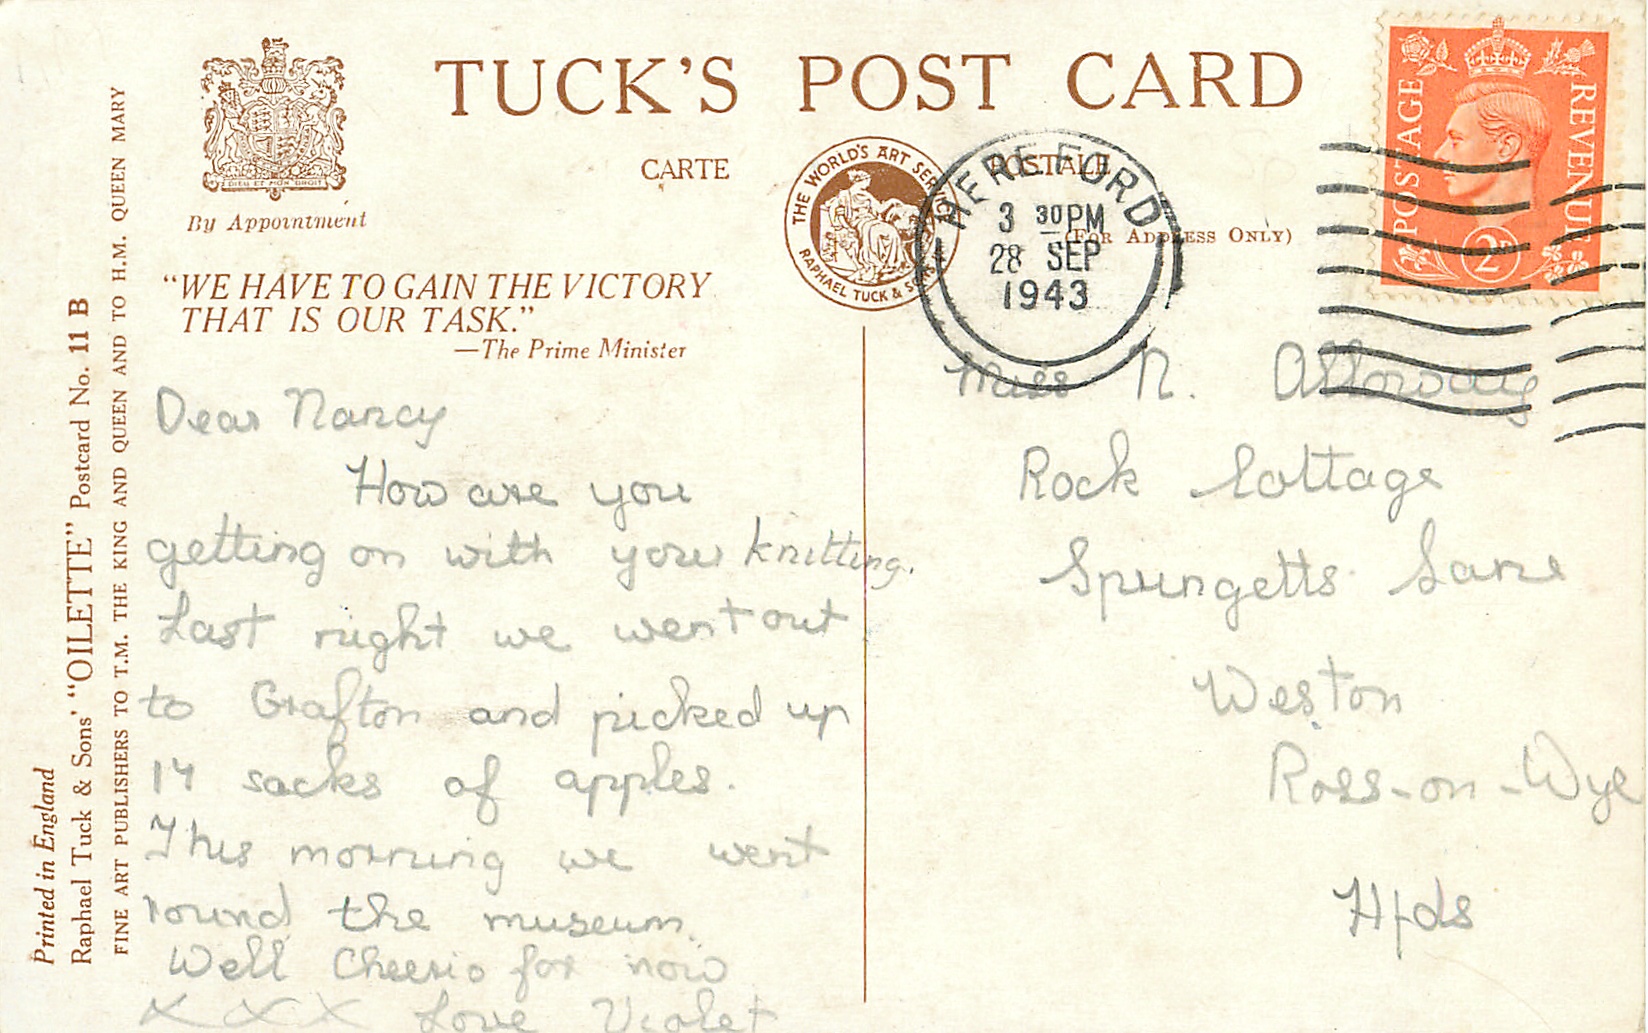 TUCK'S POST CARD
CARTE POSTALE
(FOR ADDRESS ONLY)
DIEU ET MON DROIT
By Appointment
THE WORLD'S ART SERVICE
RAPHAEL TUCK & SONS
HEREFORD
3 30 PM
28 SEP
1943
POSTAGE
REVENUE
2D
"WE HAVE TO GAIN THE VICTORY
THAT IS OUR TASK."
—The Prime Minister
Dear Nancy
How are you
getting on with your knitting.
Last night we went out
to Grafton and picked up
14 sacks of apples.
This morning we went
round the museum.
Well Cheerio for now
XXX Love Violet
Miss N. Alloway
Rock Cottage
Spungetts Lane
Weston
Ross-on-Wye
Hfds
Printed in England
Raphael Tuck & Sons' "OILETTE" Postcard No. 11 B
FINE ART PUBLISHERS TO T.M. THE KING AND QUEEN AND TO H.M. QUEEN MARY